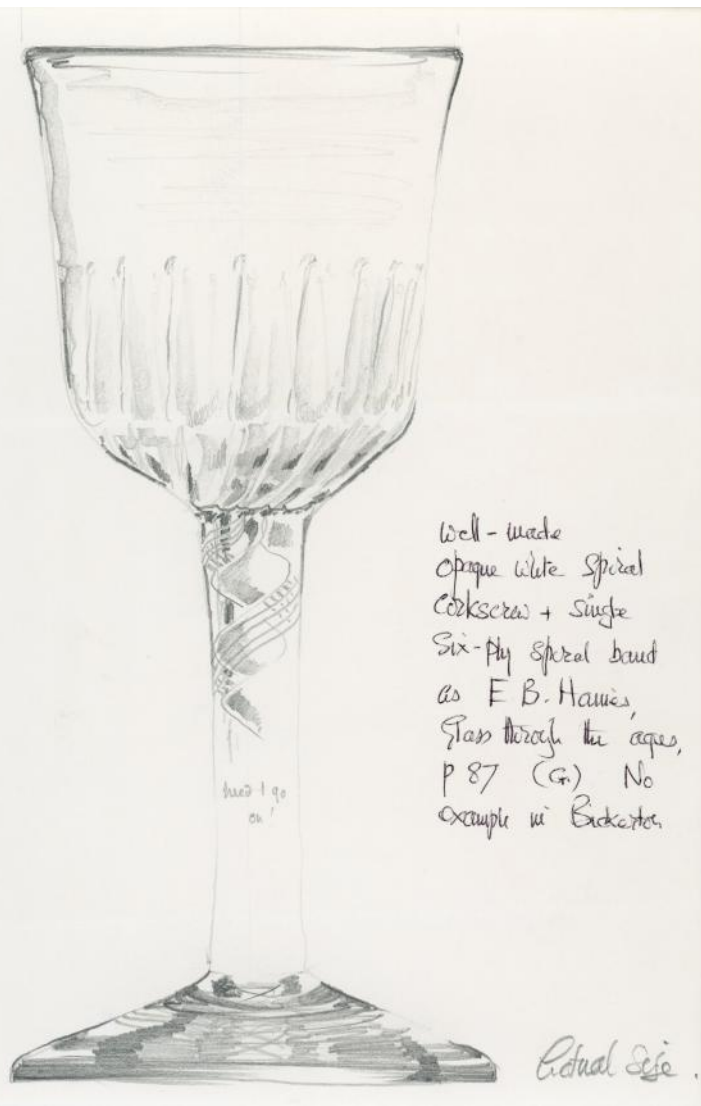 well-made
opaque white spiral
corkscrew + single
Six-ply spiral band
as E B. Haines,
Glass through the ages,
p 87 (G.) No
example in Bickerton
need I go
on!
Actual Size.